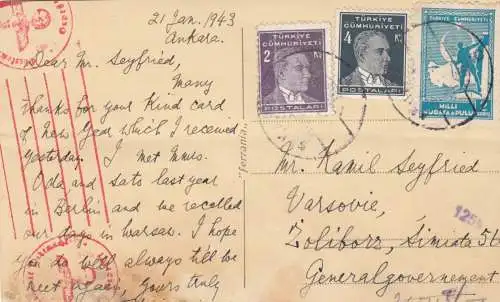 21 Jan. 1943
Ankara.
Dear Mr. Seyfried,
Many
thanks for your kind card
of new year which I received
yesterday. I met Mmes.
Oda and Sato last year
in Berlin and we recalled
our days in warsaw. I hope
you do well always till we
meet again, yours truly
TÜRKİYE
CÜMHURİYETİ
2
POSTALARI
TÜRKİYE
CÜMHURİYETİ
4
POSTALARI
TÜRKİYE CÜMHURİYETİ
MİLLİ
MÜDAFAA PULU
"Ferrania"
Mr. Kamil Seyfried
Varsovie,
Zoliborz, Smiala 56
Generalgouvernement